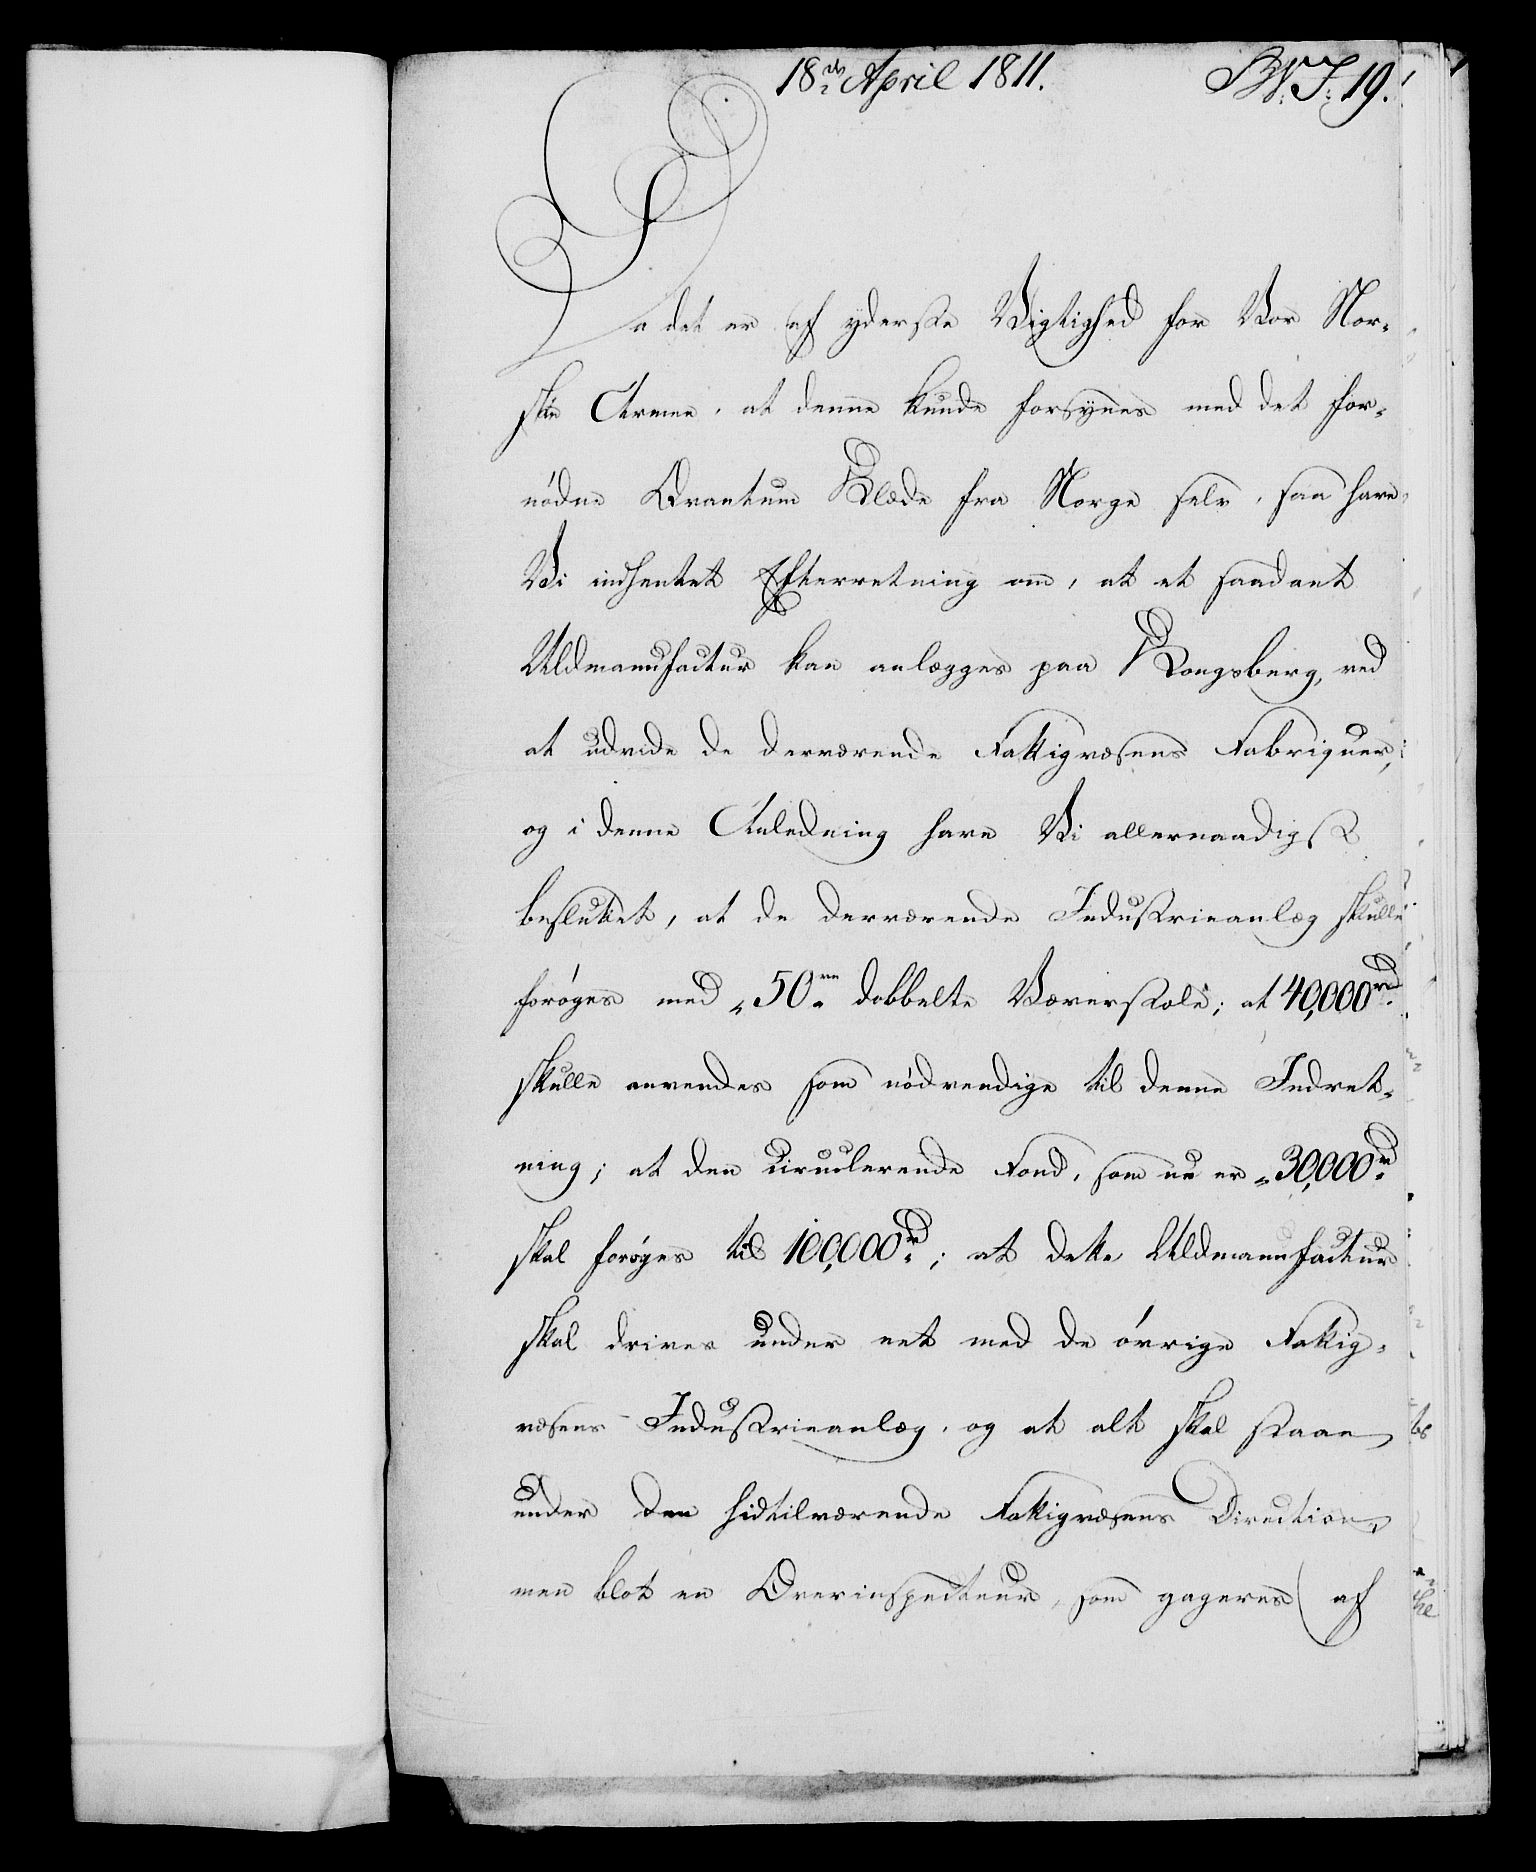 18de April 1811.
No: 19.
Da det er af yderste Vigtighed for Vor Nor-
ske Armee, at denne kunde forsynes med det for-
nødne Qvantum Klæde fra Norge selv, saa have
Vi indhentet Efterretning om, at et saadant
Uldmanufactur kan anlægges paa Kongsberg, ved
at udvide de derværende Fattigvæsens Fabriquer,
og i denne Anledning have Vi allernaadigst
besluttet, at de derværende Industrieanlæg skulle
forøges med 50ve dobbelte Væverstole; at 40,000rd
skulle anvendes som nødvendige til denne Indret-
ning; at den circulerende Fond, som nu er 30,000rd
skal forøges til 100,000rd; at dette Uldmanufactur
skal drives under eet med de øvrige Fattig-
væsens Industrieanlæg, og at alt skal staae
under den hidtilværende Fattigvæsens Direction,
men blot en Overinspecteur, som gageres af